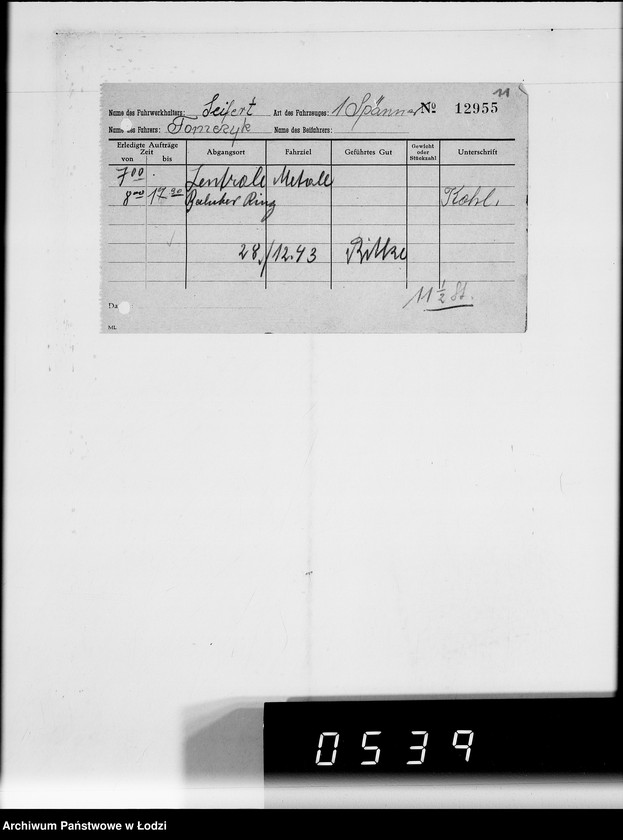 11
Name des Fuhrwerkhalters: Seifert Art des Fahrzeuges: 1 Spänner No 12955
Name des Fahrers: Tomczyk Name des Beifahrers:
Erledigte Aufträge Zeit von bis Abgangsort Fahrziel Geführtes Gut Gewicht oder Stückzahl Unterschrift
7 00 Zentrale Metall
8 00 17 30 Baluter Ring Kohl.
28./12.43 Rilke
11 1/2 St.
Da
ML
0539
Archiwum Państwowe w Łodzi